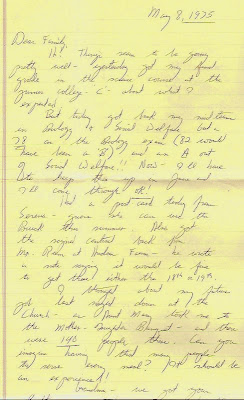 May 8, 1975
Dear Family,
Hi! Things seem to be going
pretty well - yesterday got my final
grade in the science course at the
summer college - C - about what I
expected.
But today got back my mid term
in Biology & Social Welfare. Got a
78 on the Biology exam (82 would
have been a B) and an B out
of Social Welfare!! Now - I'll have
to keep them up in June and
I'll come through ok!
Had a post card today from
- guess
Buick this summer. Also got
the signed contract back from
Mr. at Farm - he wrote
a note saying it would be fine
to get there either the 18th or 19th.
I thought about my future
job last night down at the
Church - as Aunt Mary took me to
the Mother-Daughter Banquet - and there
were 140 people there. Can you
imagine having that many people to
serve every meal? Job should be
an experience!
Grandma - we got your